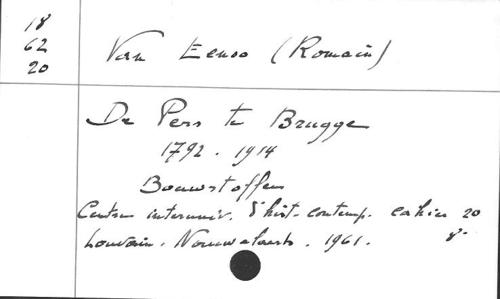 18
62
20
Van Eenoo (Romain)
De Pers te Brugge
1792 - 1914
Bouwstoffen
Centre interuniv. d'hist. contemp. cahier 20
Louvain. Nauwelaerts. 1961. 8°